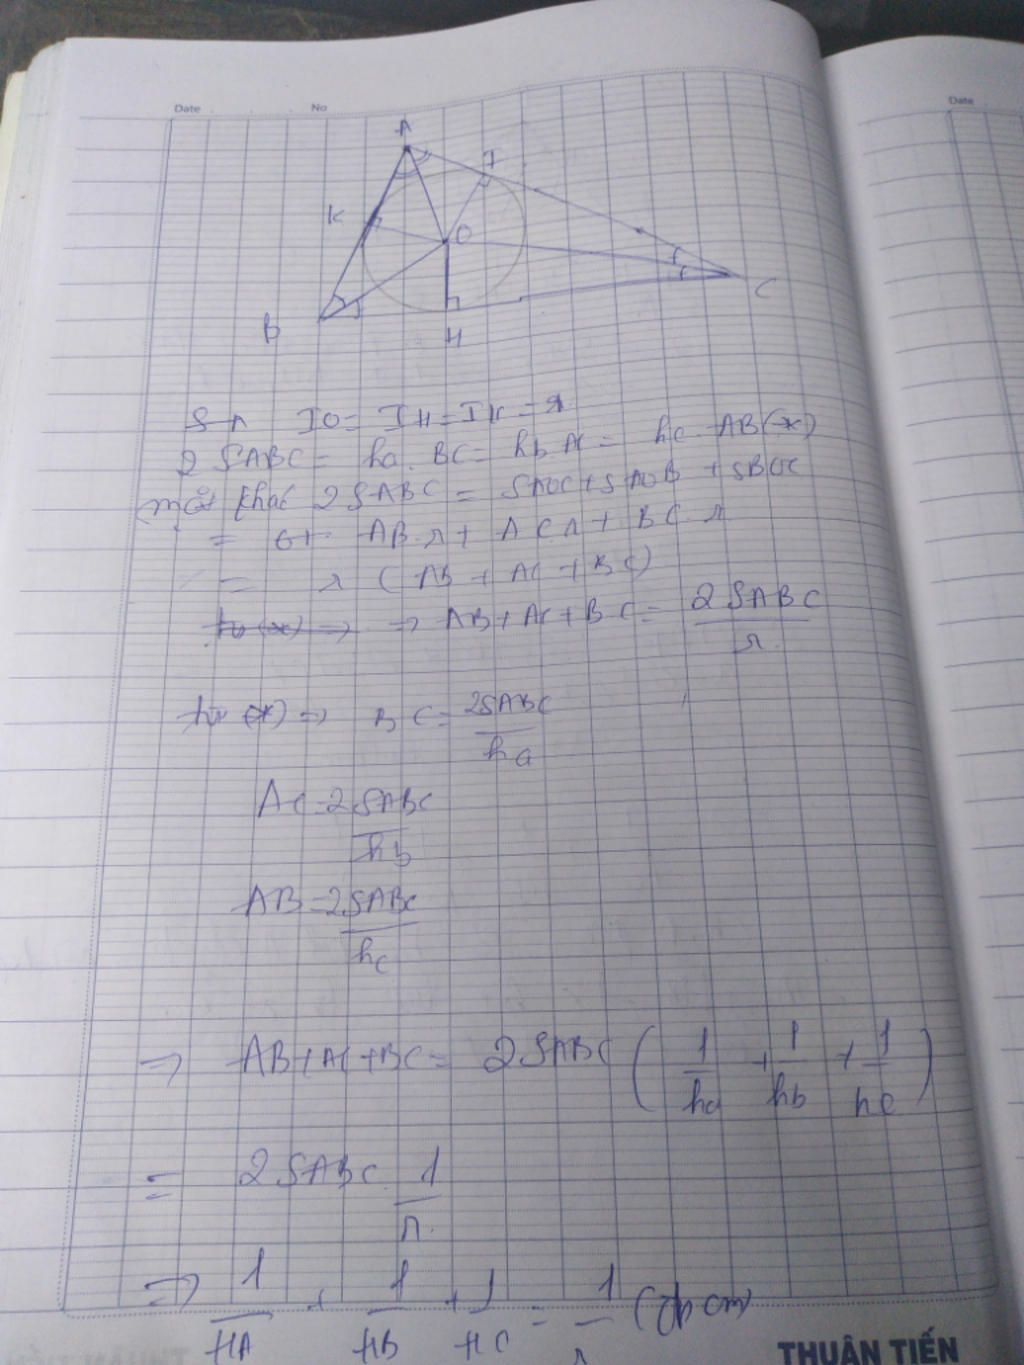 Date No
Date
A
I
K
O
C
B
H
IO = IH = IK = r
2 SABC = ha. BC = hb AC = hc AB (*)
mặt khác 2 SABC = SAOC + SAOB + SBOC
= AB. r + AC r + BC. r
= r (AB + AC + BC)
từ (*) ⇒ ⇒ AB + AC + BC = 2 SABC / r
từ (*) ⇒ BC = 2SABC / ha
AC = 2 SABC / hb
AB = 2SABC / hc
⇒ AB + AC + BC = 2 SABC ( 1/ha + 1/hb + 1/hc )
= 2 SABC 1/r
⇒ 1/HA + 1/HB + 1/HC = 1/r (đpcm)
THUẬN TIẾN